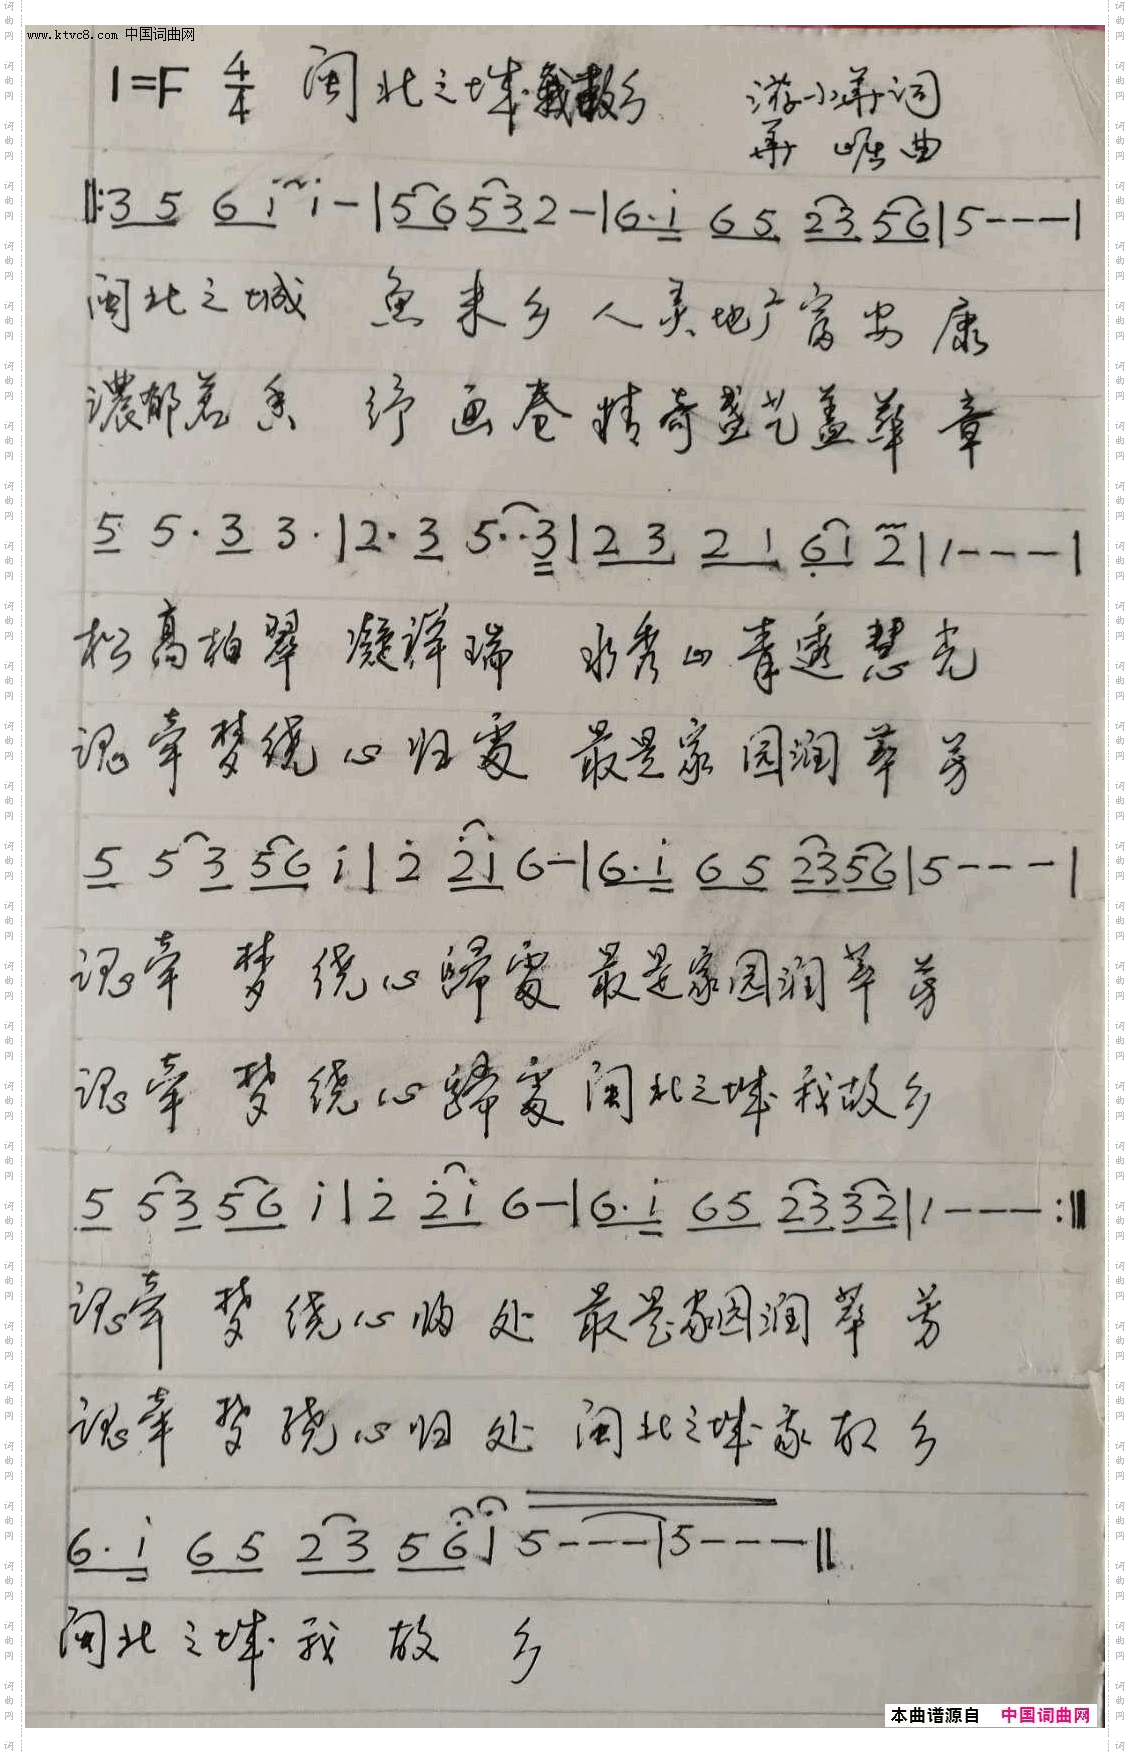 www.ktvc8.com 中国词曲网
1=F 4/4 闽北之城 我故乡 游小華词
華 曲
‖:3 5 6 i i - | 5 6 5 3 2 - | 6· i 6 5 2 3 5 6 | 5 - - - |
闽北之城 鱼米乡 人灵地广富安康
濃郁茗香 纾画卷 精奇盏艺盖華章
5 5· 3 3· | 2· 3 5·· 3 | 2 3 2 1 6 1 2 | 1 - - - |
松高柏翠 凝祥瑞 水秀山青透慧光
魂牵梦绕 心归處 最是家园润華芳
5 5 3 5 6 i | 2 2 i 6 - | 6· i 6 5 2 3 5 6 | 5 - - - |
魂牵 梦绕心歸處 最是家园润華芳
魂牵 梦绕心歸處 闽北之城我故乡
5 5 3 5 6 i | 2 2 i 6 - | 6· i 6 5 2 3 3 2 | 1 - - - :‖
魂牵 梦绕心归处 最是家园润華芳
魂牵 梦绕心归处 闽北之城家故乡
6· i 6 5 2 3 5 6 | 5 - - - | 5 - - - ‖
闽北之城我 故 乡
本曲谱源自 中国词曲网